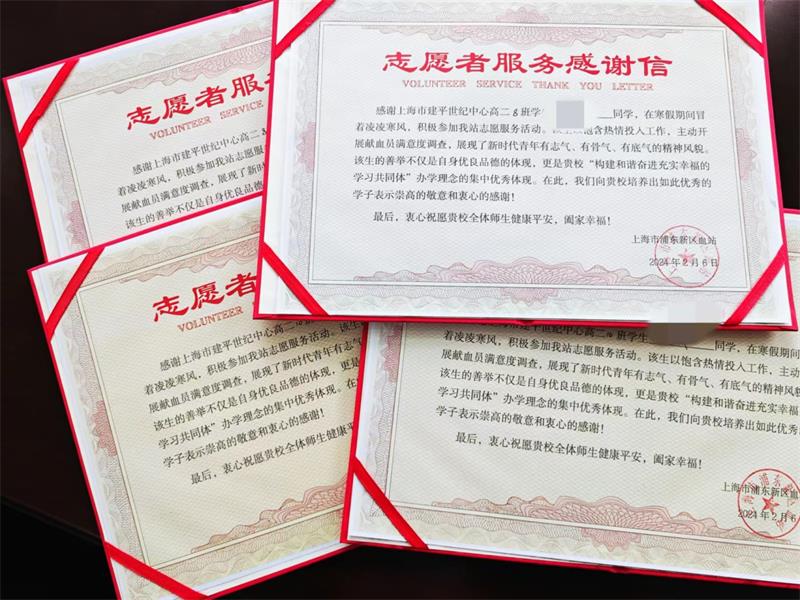 志愿者服务感谢信
VOLUNTEER SERVICE THANK YOU LETTER
感谢上海市建平世纪中心高二8班学 同学，在寒假期间冒
着凌凌寒风，积极参加我站志愿服务活动。该生以饱含热情投入工作，主动开
展献血员满意度调查，展现了新时代青年有志气、有骨气、有底气的精神风貌。
该生的善举不仅是自身优良品德的体现，更是贵校“构建和谐奋进充实幸福的
学习共同体”办学理念的集中优秀体现。在此，我们向贵校培养出如此优秀的
学子表示崇高的敬意和衷心的感谢！
最后，衷心祝愿贵校全体师生健康平安，阖家幸福！
上海市浦东新区血站
2024年2月6日
志愿者服务
VOLUNTEER SERVICE
感谢上海市建平世纪中心高二
着凌凌寒风，积极参加我站志愿服
展献血员满意度调查，展现了新时代
该生的善举不仅是自身优良品德的
志愿者
VOLUNTEER
感谢上海市建平世纪中心高二
着凌凌寒风，积极参加我站志愿服务活动。该生
展献血员满意度调查，展现了新时代青年有志气
该生的善举不仅是自身优良品德的体现，更是贵
学习共同体”办学理念的集中优秀体现。在
学子表示崇高的敬意和衷心的感谢！
最后，衷心祝愿贵校全体师生健康平
感谢上海市建平世纪中心高二 班学生 同学，在寒假期间冒
着凌凌寒风，积极参加我站志愿服务活动。该生以饱含热情投入工作，主动
展献血员满意度调查，展现了新时代青年有志气、有骨气、有底气的精神风貌
该生的善举不仅是自身优良品德的体现，更是贵校“构建和谐奋进充实幸
学习共同体”办学理念的集中优秀体现。在此，我们向贵校培养出如此优秀
学子表示崇高的敬意和衷心的感谢！
最后，衷心祝愿贵校全体师生健康平安，阖家幸福！
上海市浦东新区血
2024年2月6